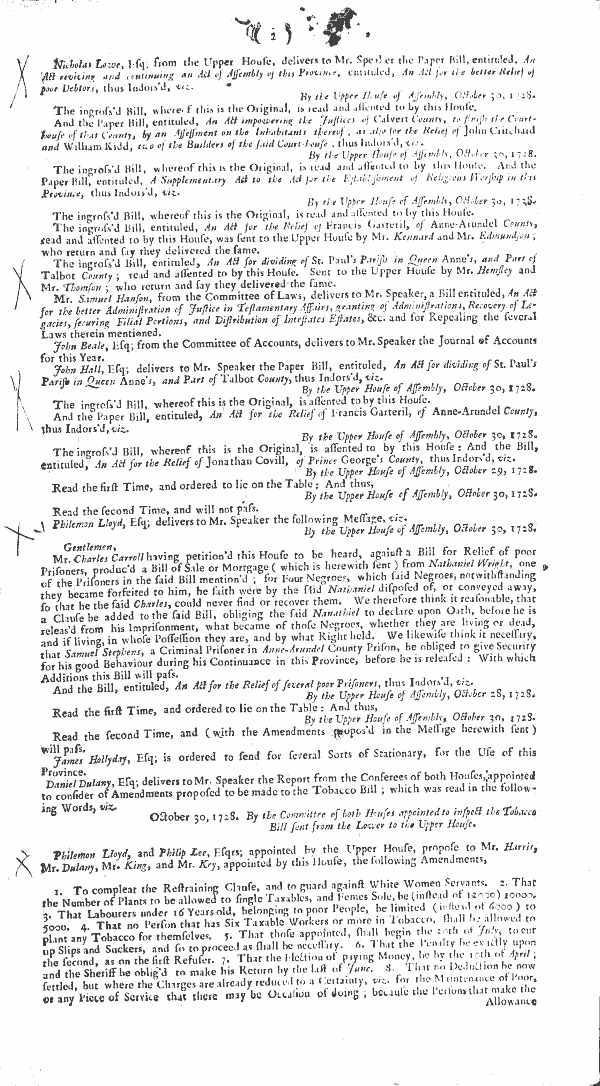 ( 2 )
Nicholas Lowe, Esq; from the Upper House, delivers to Mr. Speaker the Paper Bill, entituled, An
Act reviving and continuing an Act of Assembly of this Province, entituled, An Act for the better Relief of
poor Debtors, thus Indors'd, viz.
By the Upper House of Assembly, October 30, 1728.
The ingross'd Bill, whereof this is the Original, is read and assented to by this House.
And the Paper Bill, entituled, An Act impowering the Justices of Calvert County, to finish the Court-
house of that County, by an Assessment on the Inhabitants thereof, as also for the Relief of John Critchard
and William Kidd, two of the Builders of the said Court-house; thus Indors'd, viz.
By the Upper House of Assembly, October 30, 1728.
The ingross'd Bill, whereof this is the Original, is read and assented to by this House. And the
Paper Bill, entituled, A Supplementary Act to the Act for the Establishment of Religious Worship in this
Province, thus Indors'd, viz.
By the Upper House of Assembly, October 30, 1728.
The ingross'd Bill, whereof this is the Original, is read and assented to by this House.
The ingross'd Bill, entituled, An Act for the Relief of Francis Garteril, of Anne-Arundel County,
read and assented to by this House, was sent to the Upper House by Mr. Kennard and Mr. Edmundson;
who return and say they delivered the same.
The ingross'd Bill, entituled, An Act for dividing of St. Paul's Parish in Queen Anne's, and Part of
Talbot County; read and assented to by this House. Sent to the Upper House by Mr. Hemsley and
Mr. Thomson; who return and say they delivered the same.
Mr. Samuel Hanson, from the Committee of Laws, delivers to Mr. Speaker, a Bill entituled, An Act
for the better Administration of Justice in Testamentary Affairs, granting of Administrations, Recovery of Le-
gacies, securing Filial Portions, and Distribution of Intestates Estates, &c. and for Repealing the several
Laws therein mentioned.
John Beale, Esq; from the Committee of Accounts, delivers to Mr. Speaker the Journal of Accounts
for this Year.
John Hall, Esq; delivers to Mr. Speaker the Paper Bill, entituled, An Act for dividing of St. Paul's
Parish in Queen Anne's, and Part of Talbot County, thus Indors'd, viz.
By the Upper House of Assembly, October 30, 1728.
The ingross'd Bill, whereof this is the Original, is assented to by this House.
And the Paper Bill, entituled, An Act for the Relief of Francis Garteril, of Anne-Arundel County,
thus Indors'd, viz.
By the Upper House of Assembly, October 30, 1728.
The ingross'd Bill, whereof this is the Original, is assented to by this House: And the Bill,
entituled, An Act for the Relief of Jonathan Covill, of Prince George's County, thus Indors'd, viz.
By the Upper House of Assembly, October 29, 1728.
Read the first Time, and ordered to lie on the Table: And thus,
By the Upper House of Assembly, October 30, 1728.
Read the second Time, and will not pass.
Philemon Lloyd, Esq; delivers to Mr. Speaker the following Message, viz.
By the Upper House of Assembly, October 30, 1728.
Gentlemen,
Mr. Charles Carroll having petition'd this House to be heard, against a Bill for Relief of poor
Prisoners, produc'd a Bill of Sale or Mortgage ( which is herewith sent ) from Nathaniel Wright, one
of the Prisoners in the said Bill mention'd; for Four Negroes, which said Negroes, notwithstanding
they became forfeited to him, he saith were by the said Nathaniel disposed of, or conveyed away,
so that he the said Charles, could never find or recover them. We therefore think it reasonable, that
a Clause be added to the said Bill, obliging the said Nanathiel to declare upon Oath, before he is
releas'd from his Imprisonment, what became of those Negroes, whether they are living or dead,
and if living, in whose Possession they are, and by what Right held. We likewise think it necessary,
that Samuel Stephens, a Criminal Prisoner in Anne-Arundel County Prison, be obliged to give Security
for his good Behaviour during his Continuance in this Province, before he is released: With which
Additions this Bill will pass.
And the Bill, entituled, An Act for the Relief of several poor Prisoners, thus Indors'd, viz.
By the Upper House of Assembly, October 28, 1728.
Read the first Time, and ordered to lie on the Table: And thus,
By the Upper House of Assembly, October 30, 1728.
Read the second Time, and ( with the Amendments propos'd in the Message herewith sent )
will pass.
James Hollyday, Esq; is ordered to send for several Sorts of Stationary, for the Use of this
Province.
Daniel Dulany, Esq; delivers to Mr. Speaker the Report from the Conferees of both Houses, appointed
to consider of Amendments proposed to be made to the Tobacco Bill; which was read in the follow-
ing Words, viz.
October 30, 1728. By the Committee of both Houses appointed to inspect the Tobacco
Bill sent from the Lower to the Upper House.
Philemon Lloyd, and Philip Lee, Esqrs; appointed by the Upper House, propose to Mr. Harris,
Mr. Dulany, Mr. King, and Mr. Key, appointed by this House, the following Amendments,
1. To compleat the Restraining Clause, and to guard against White Women Servants. 2. That
the Number of Plants to be allowed to single Taxables, and Femes Sole, be (instead of 12000) 10000.
3. That Labourers under 16 Years old, belonging to poor People, be limited (instead of 6000) to
5000. 4. That no Person that has Six Taxable Workers or more in Tobacco, shall be allowed to
plant any Tobacco for themselves. 5. That those appointed, shall begin the 20th of July, to cut
up Slips and Suckers, and so to proceed as shall be necessary. 6. That the Penalty be exactly upon
the second, as on the first Refuser. 7. That the Election of paying Money, be by the 10th of April;
and the Sheriff be oblig'd to make his Return by the last of June. 8. That no Deduction be now
settled, but where the Charges are already reduced to a Certainty, viz. for the Maintenance of Poor,
or any Piece of Service that there may be Occasion of doing; because the Persons that make the
Allowance